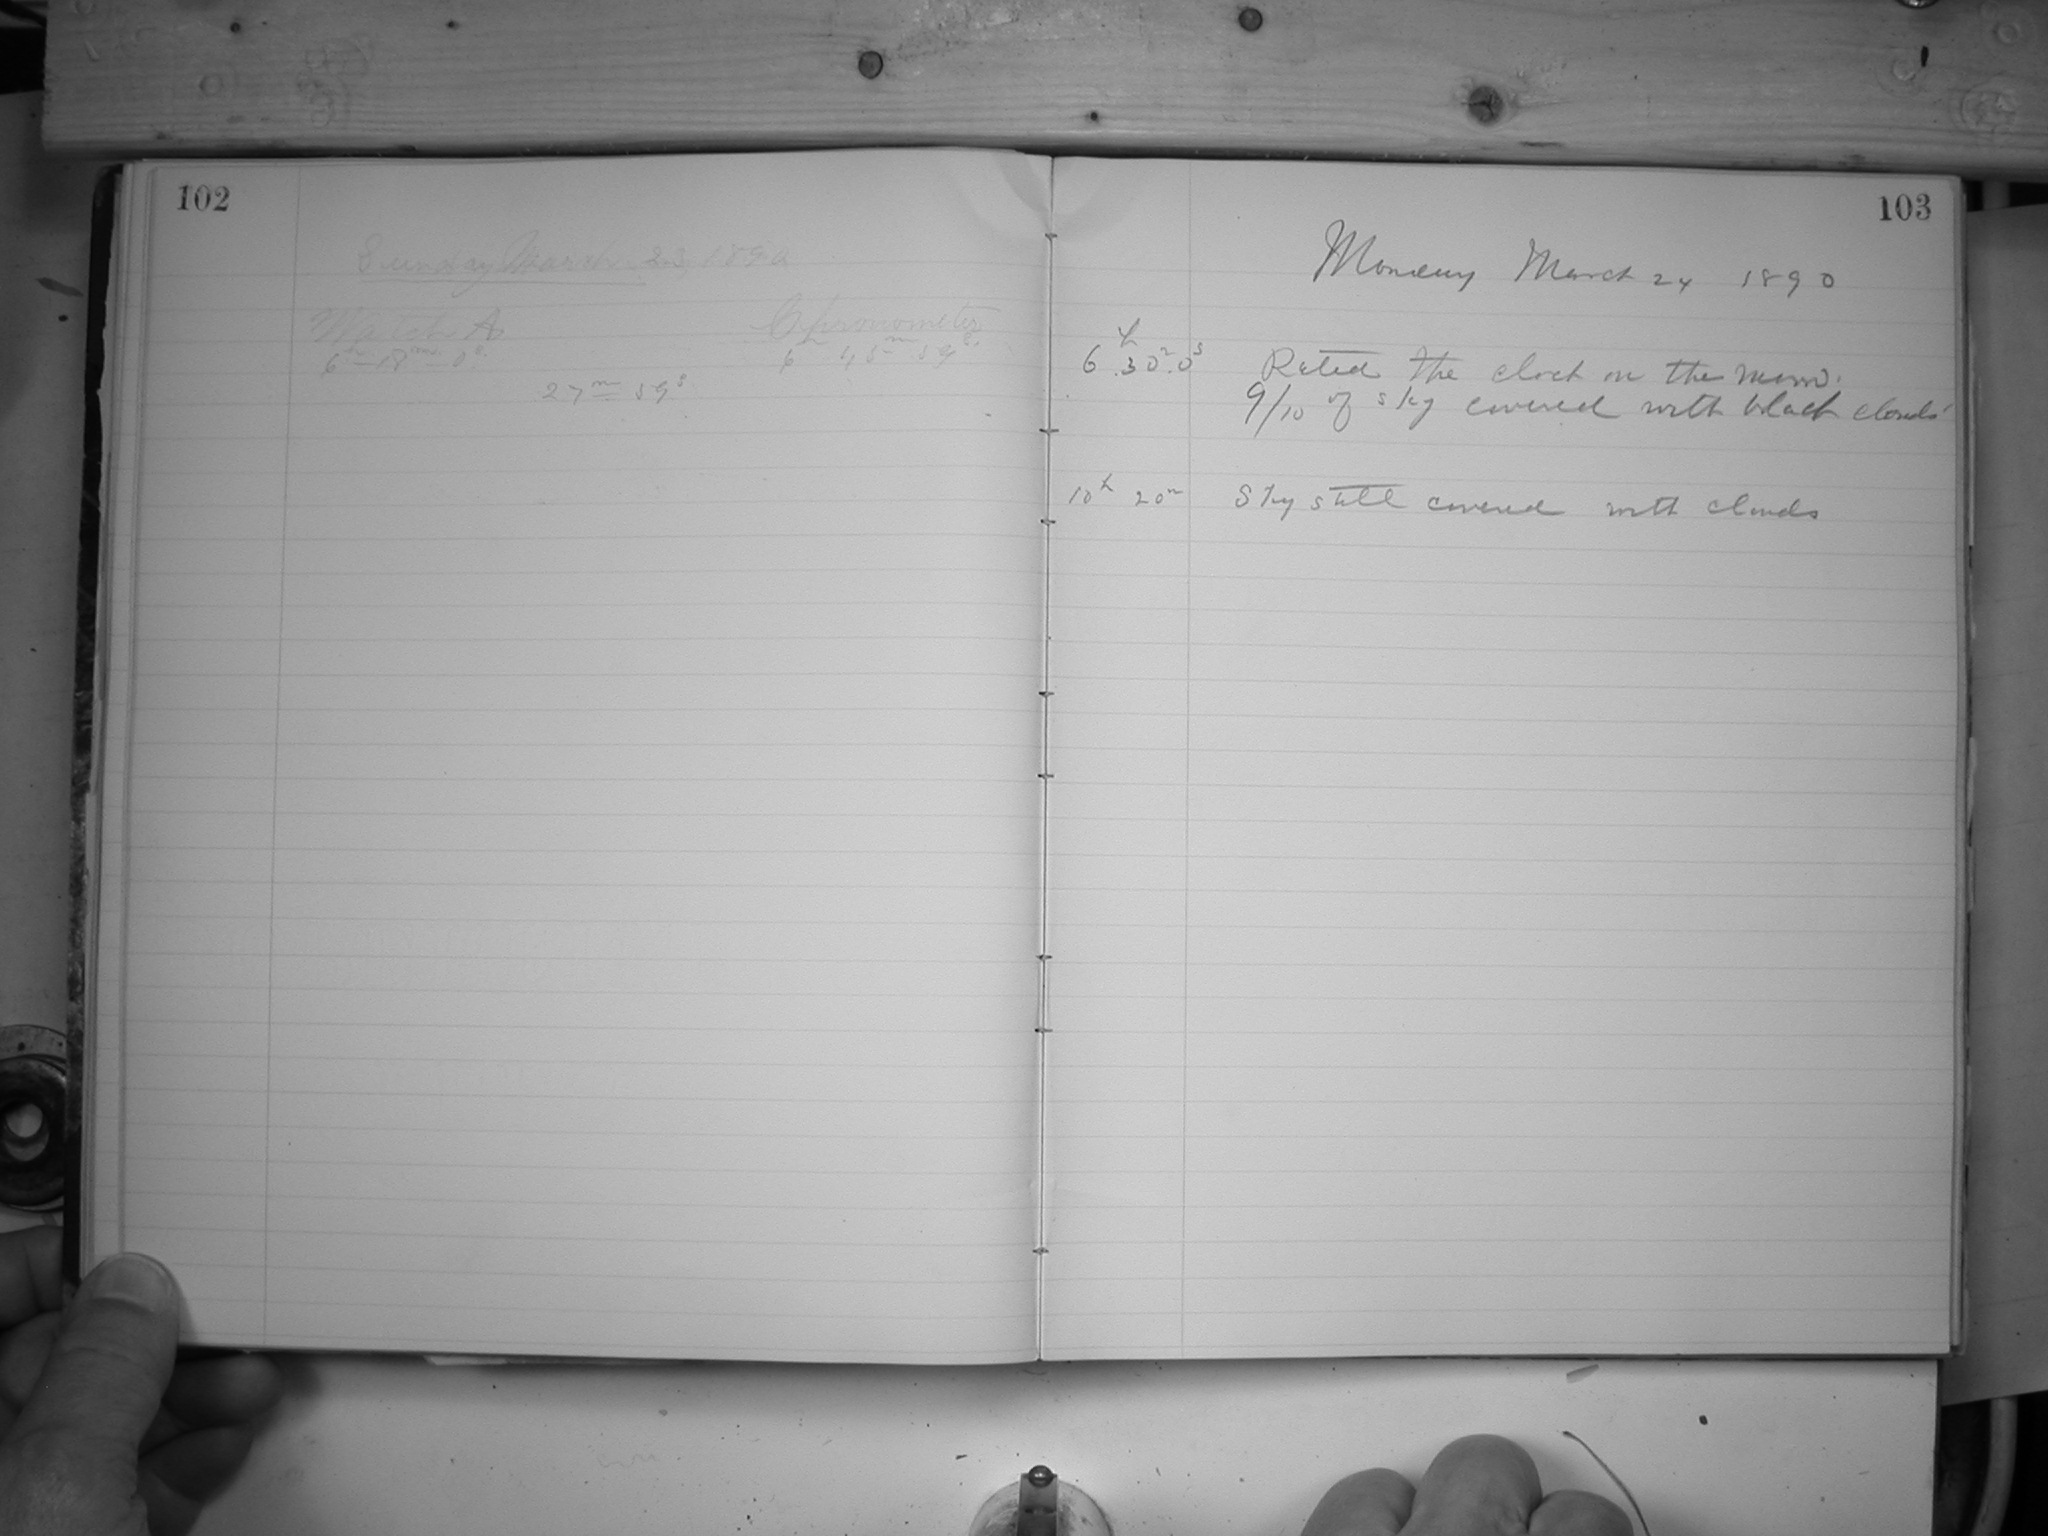 102
Sunday March 23, 1890
Watch A Chronometer
6h 18m 0s 6h 45m 59s
27m 59s
103
Monday March 24 1890
6h 30m 0s Rated the clock on the
9/10 of sky covered with black clouds
10h 20m Sky still covered with clouds